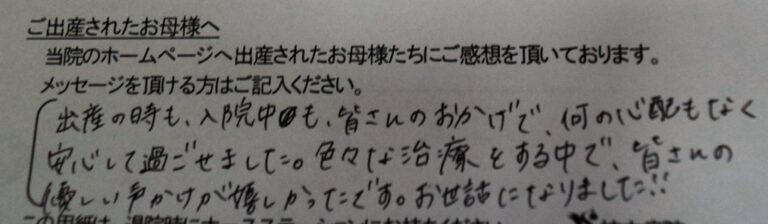 ご出産されたお母様へ
当院のホームページへ出産されたお母様たちにご感想を頂いております。
メッセージを頂ける方はご記入ください。
出産の時も、入院中も、皆さんのおかげで、何の心配もなく
安心して過ごせました。色々な治療をする中で、皆さんの
優しい声かけが嬉しかったです。お世話になりました!!
この用紙は、退院時にナースステーションにお持ちください